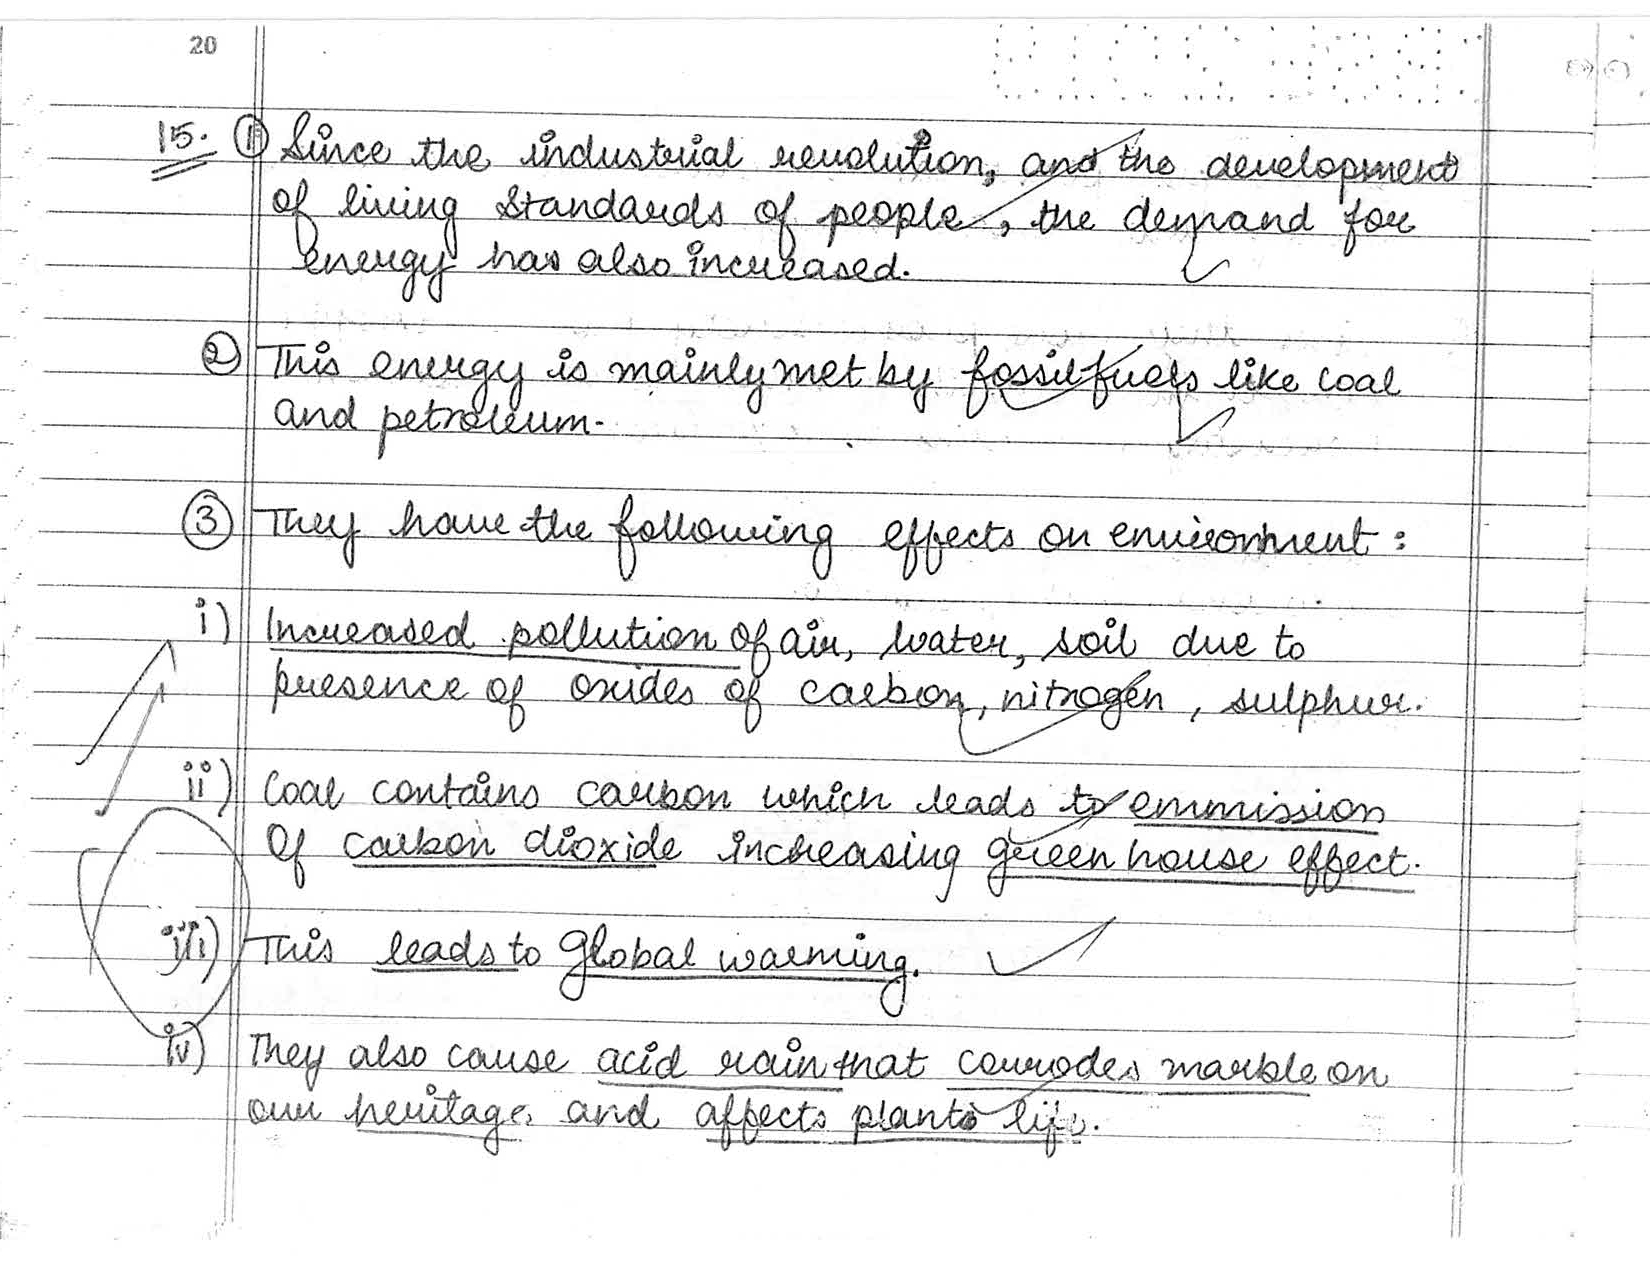 20
15. ① Since the industrial revolution, and the development
of living standards of people, the demand for
energy has also increased.
② This energy is mainly met by fossil fuels like coal
and petroleum.
③ They have the following effects on environment:
i) Increased pollution of air, water, soil due to
presence of oxides of carbon, nitrogen, sulphur.
ii) Coal contains carbon which leads to emmission
Of carbon dioxide increasing green house effect.
iii) This leads to Global warming.
iv) They also cause acid rain that corrodes marble on
our heritage and affects plants life.